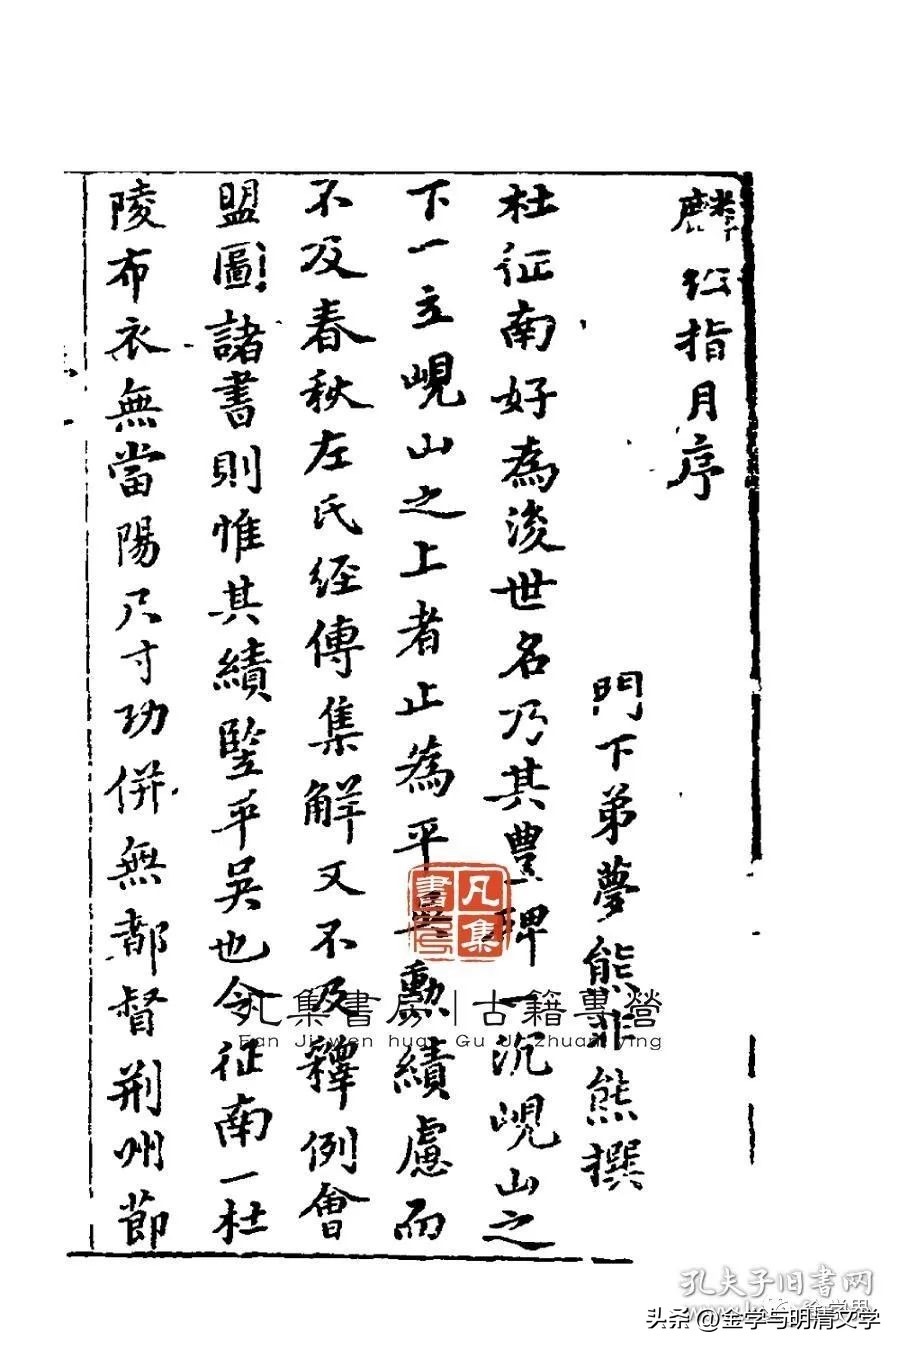 麟經指月序
門下弟夢熊非熊撰
杜征南好為後世名乃其豐碑一沉峴山之
下一立峴山之上者止為平吳勳績慮而
不及春秋左氏經傳集解又不及釋例會
盟圖諸書則惟其績竪平吳也令征南一杜
陵布衣無當陽尺寸功併無都督荊州節
凡集書房｜古籍專營
凡集書
孔夫子旧书网
头条 @金学与明清文学